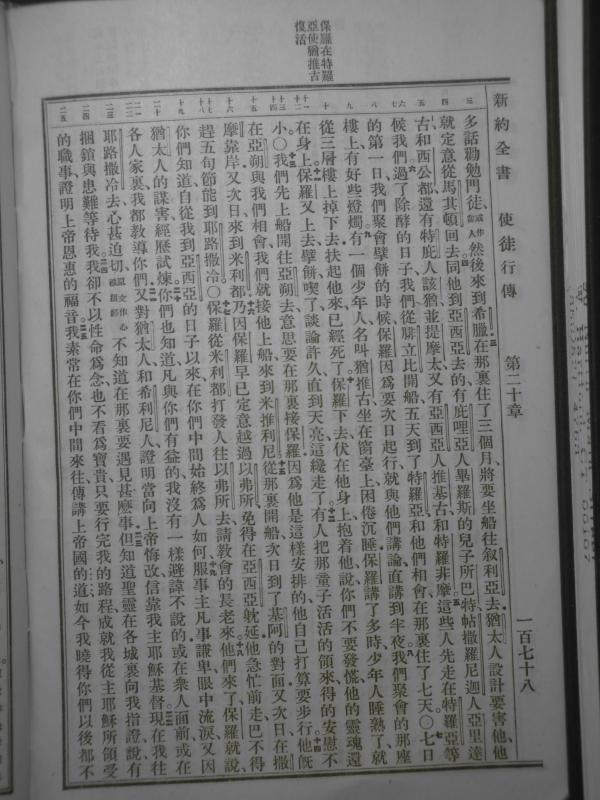 保羅在特羅
亞使猶推古
復活
新約全書 使徒行傳 第二十章 一百七十八
多話勸勉門徒或作衆人然後來到希臘在那裏住了三個月將要坐船往叙利亞去猶太人設計要害他他
就定意從馬其頓回去同他到亞西亞去的有庇哩亞人畢羅斯的兒子所巴特帖撒羅尼迦人亞里達
古和西公都還有特庇人該猶並提摩太又有亞西亞人推基古和特羅非摩這些人先走在特羅亞等
候我們過了除酵的日子我們從腓立比開船五天到了特羅亞和他們相會在那裏住了七天〇七日
的第一日我們聚會擘餅的時候保羅因爲要次日起行就與他們講論直講到半夜我們聚會的那座
樓上有好些燈燭有一個少年人名叫猶推古坐在窗臺上困倦沉睡保羅講了多時少年人睡熟了就
從三層樓上掉下去扶起他來已經死了保羅下去伏在他身上抱着他說你們不要發慌他的靈魂還
在身上保羅又上去擘餅喫了談論許久直到天亮這纔走了有人把那童子活活的領來得的安慰不
小〇我們先上船開往亞朔去意思要在那裏接保羅因爲他是這樣安排的他自己打算要步行他旣
在亞朔與我們相會我們就接他上船來到米推利尼從那裏開船次日到了基阿的對面又次日在撒
摩靠岸又次日來到米利都乃因保羅早已定意越過以弗所免得在亞西亞躭延他急忙前走巴不得
趕五旬節能到耶路撒冷〇保羅從米利都打發人往以弗所去請敎會的長老來他們來了保羅就說
你們知道自從我到亞西亞的日子以來在你們中間始終爲人如何服事主凡事謙卑眼中流淚又因
猶太人的謀害經歷試煉你們也知道凡與你們有益的我沒有一樣避諱不說的或在衆人面前或在
各人家裏我都敎導你們又對猶太人和希利尼人證明當向上帝悔改信靠我主耶穌基督現在我往
耶路撒冷去心甚迫切原文作心被捆綁不知道在那裏要遇見甚麽事但知道聖靈在各城裏向我指證說有
捆鎖與患難等待我我卻不以性命爲念也不看爲寶貴只要行完我的路程成就我從主耶穌所領受
的職事證明上帝恩惠的福音我素常在你們中間來往傳講上帝國的道如今我曉得你們以後都不